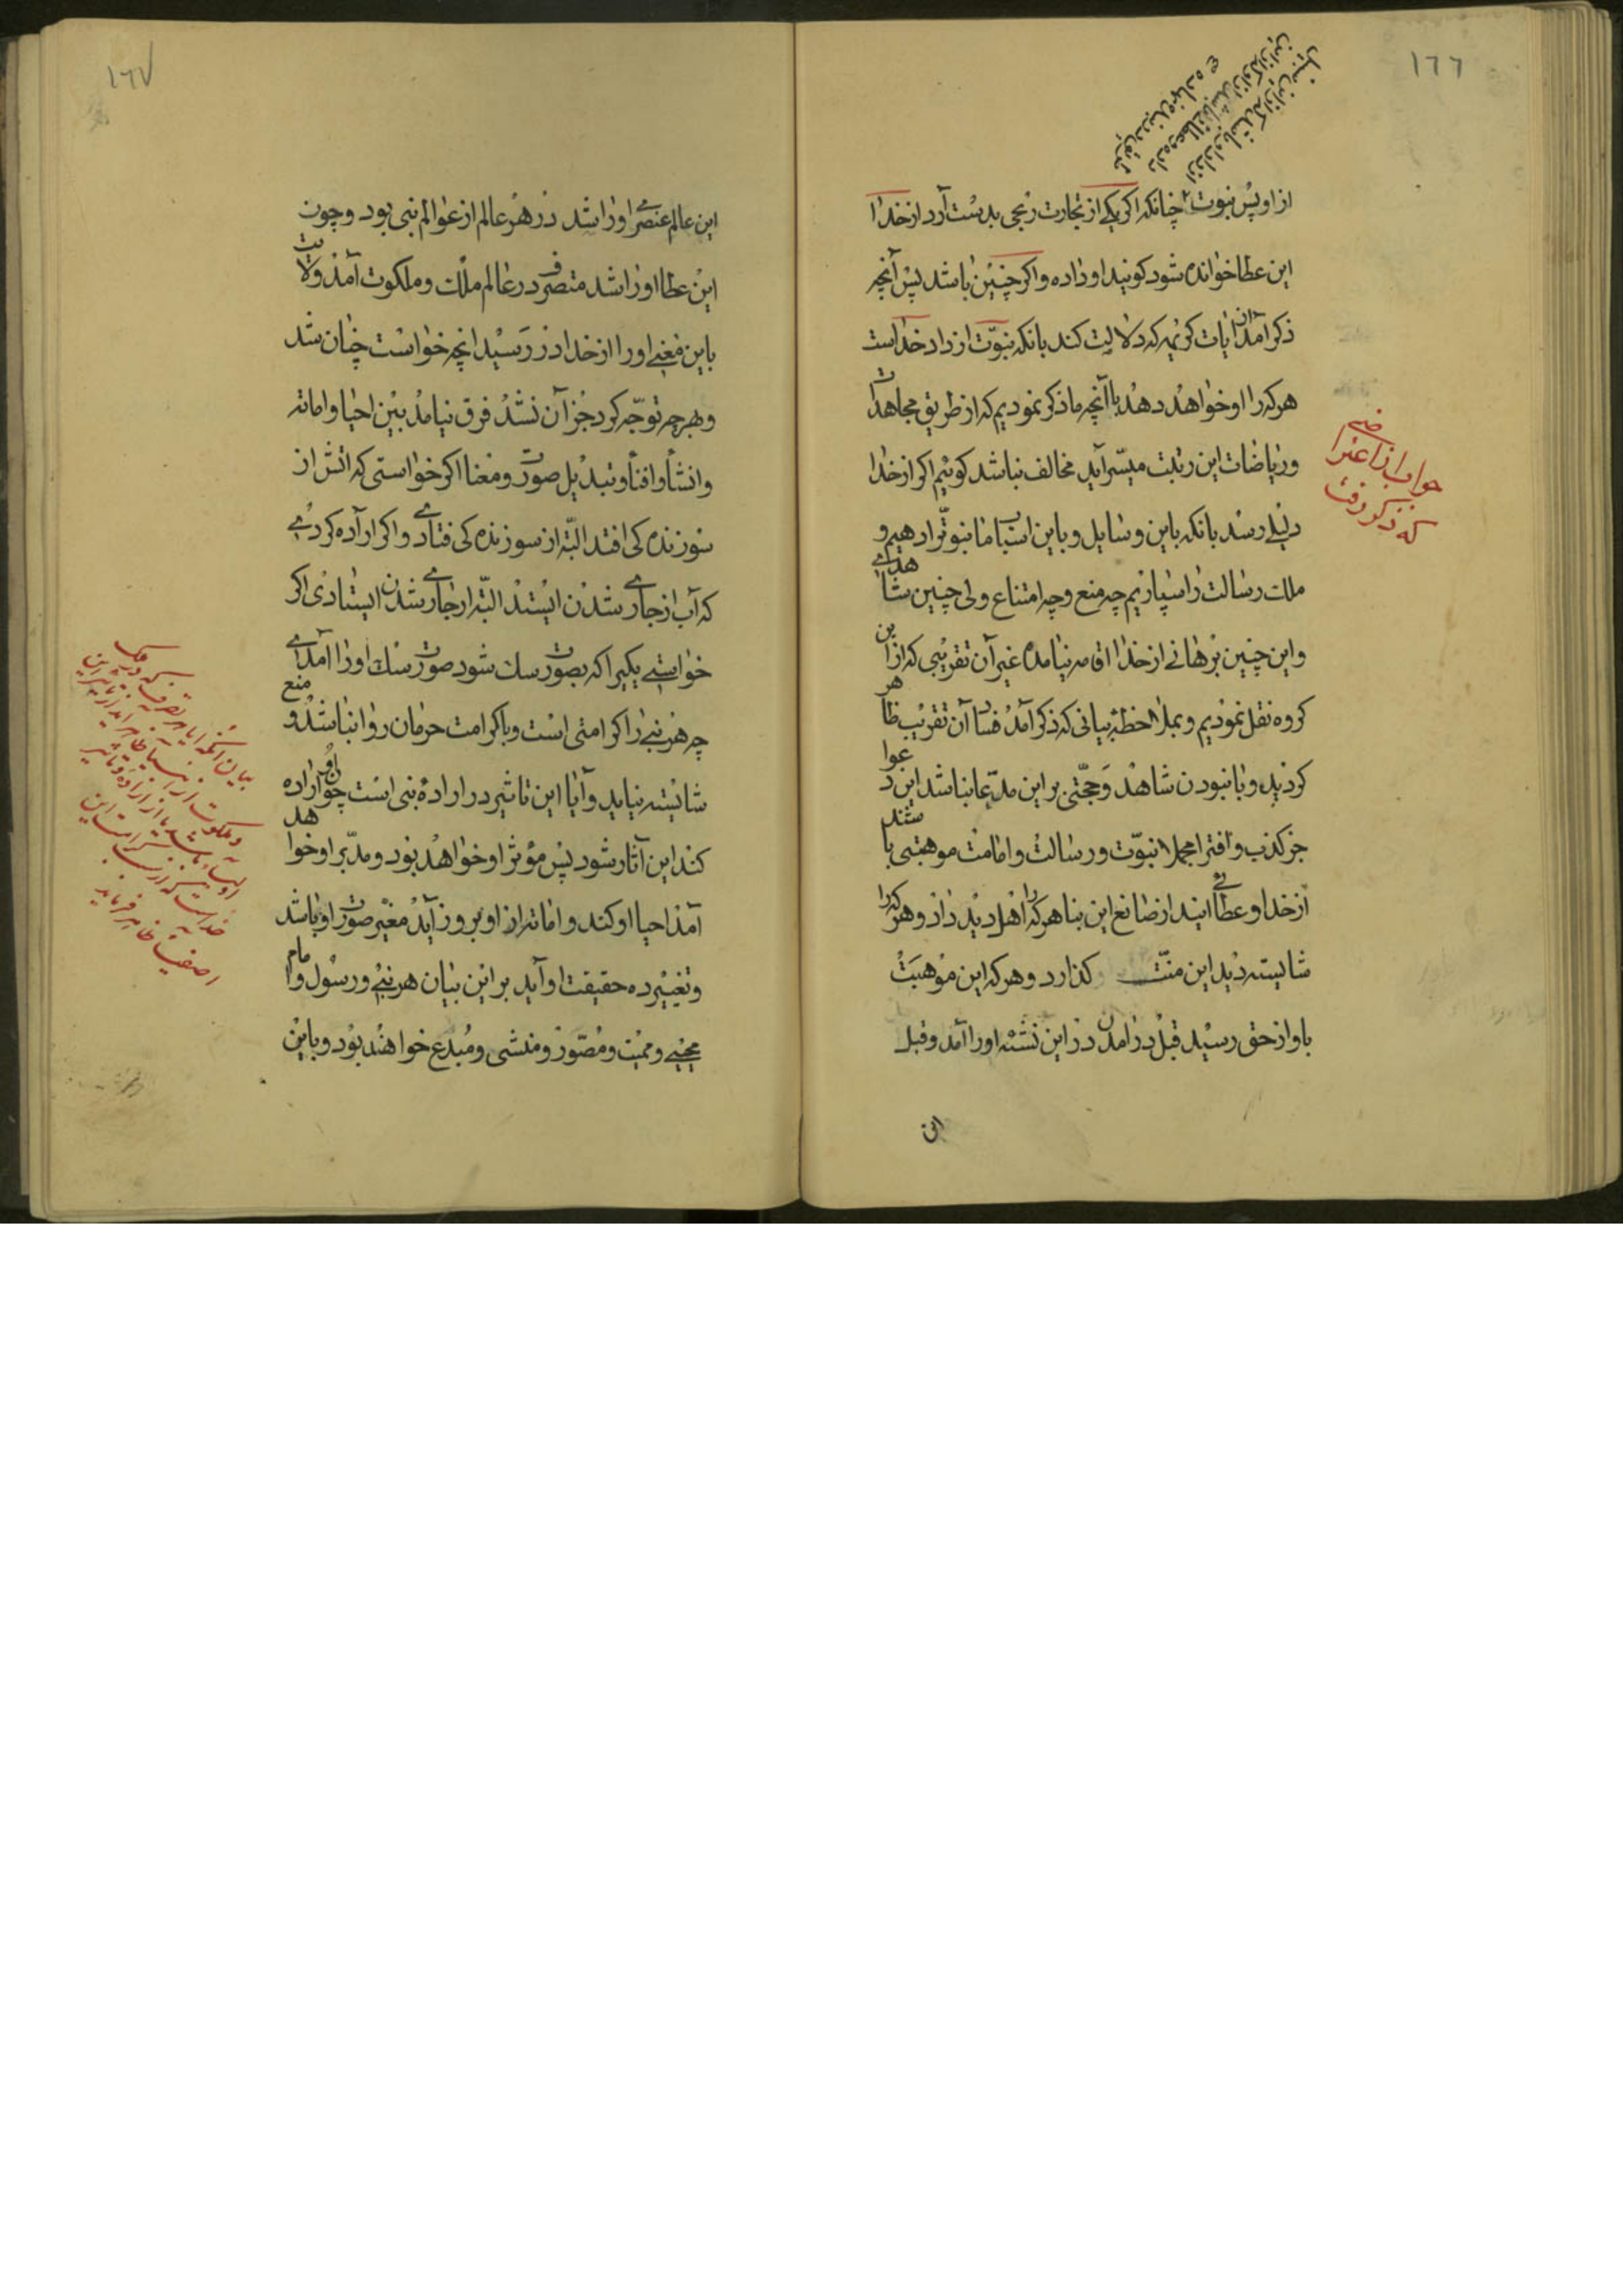 ١٦٦
از او پس نبوت چنانکه اکر یکی از تجارت رنجی بدست آرد از خدا
این عطا خوانده شود کویند او داده و اکر چنین باشد پس آنچه
ذکر آمد از آیات کریمه که دلالت کند بانکه نبوّت از داد خداست
هر که را او خواهد دهد با آنچه ما ذکر نمودیم که از طریق مجاهدات
و ریاضات این رتبت میسّر آید مخالف نباشد کوئیم اکر از خدا
دلیلی رسد بانکه باین وسایل و باین اسباب ما نبوّت را دهیم و
ملت رسالت را سپاریم چه منع و چه امتناع ولی چنین شاهدی
و این چنین برهانی از خدا اقامه نیامده غیر آن تقریبی که از این
کروه نقل نمودیم و بملاحظهٔ بیانی که ذکر آمد فساد آن تقریب ظاهر
کردید و با نبودن شاهد و حجّتی بر این مدّعا نباشد این دعوا
جز کذب و افترا مجملا نبوّت و رسالت و امامت موهبتی باشند
از خدا و عطائی آیند از صانع این بنا هر که را اهل دید داد و هر که را
شایسته دید این منّت کذارد و هر که این موهبت
باو از حق رسید قبل در آمدن در این نشئه او را آمد و قبل
این
جواب از اعتراضی
که ذکر رفت
١٦٧
این عالم عنصری او را شد در هر عالم از عوالم نبی بود و چون
این عطا او را شد متصرف در عالم ملک و ملکوت آمد ولایت
باین معنی او را از خدا در رسید آنچه خواست چنان شد
و بهرچه توجّه کرد جز آن نشد فرق نیامد بین احیا و اماته
و انشأ و افنأ و تبدیل صورت و معنا اکر خواستی که اتش از
سوزندکی افتد البتّه از سوزندکی فتادی و اکر اراده کردی
که آب از جاری شدن ایستد البتّه از جاری شدن ایستادی اکر
خواستی یکی را که بصورت سک شود صورت سک او را آمدی
چه هر نبی را کرامتی است و با کرامت حرمان روا نباشد و منع
شایسته نیاید و آیا این تاثیر در ارادهٔ نبی است چون او اراده
کند این آثار شود پس مؤثر او خواهد بود و مدّبر او خواهد
آمد احیا او کند و اماته از او بروز آید مغیّر صورت او باشد
و تغییر ده حقیقت او آید بر این بیان هر نبی و رسول و امام
محیی و ممیت و مصّور و منشی و مبدع خواهند بود و باین
بیان آنکه ایا هر تصرف که در ملک
و ملکوت از انبیا ظاهر آید از تاثیر این